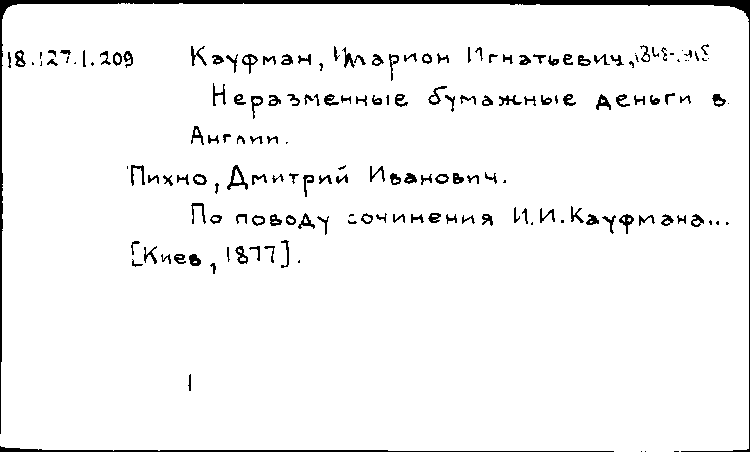 18.127.1.209 Кауфман, Иларион Игнатьевич, 1848-1915
Неразменные бумажные деньги в
Англии.
Пихно, Дмитрий Иванович.
По поводу сочинения И.И.Кауфмана...
[Киев, 1877].
1